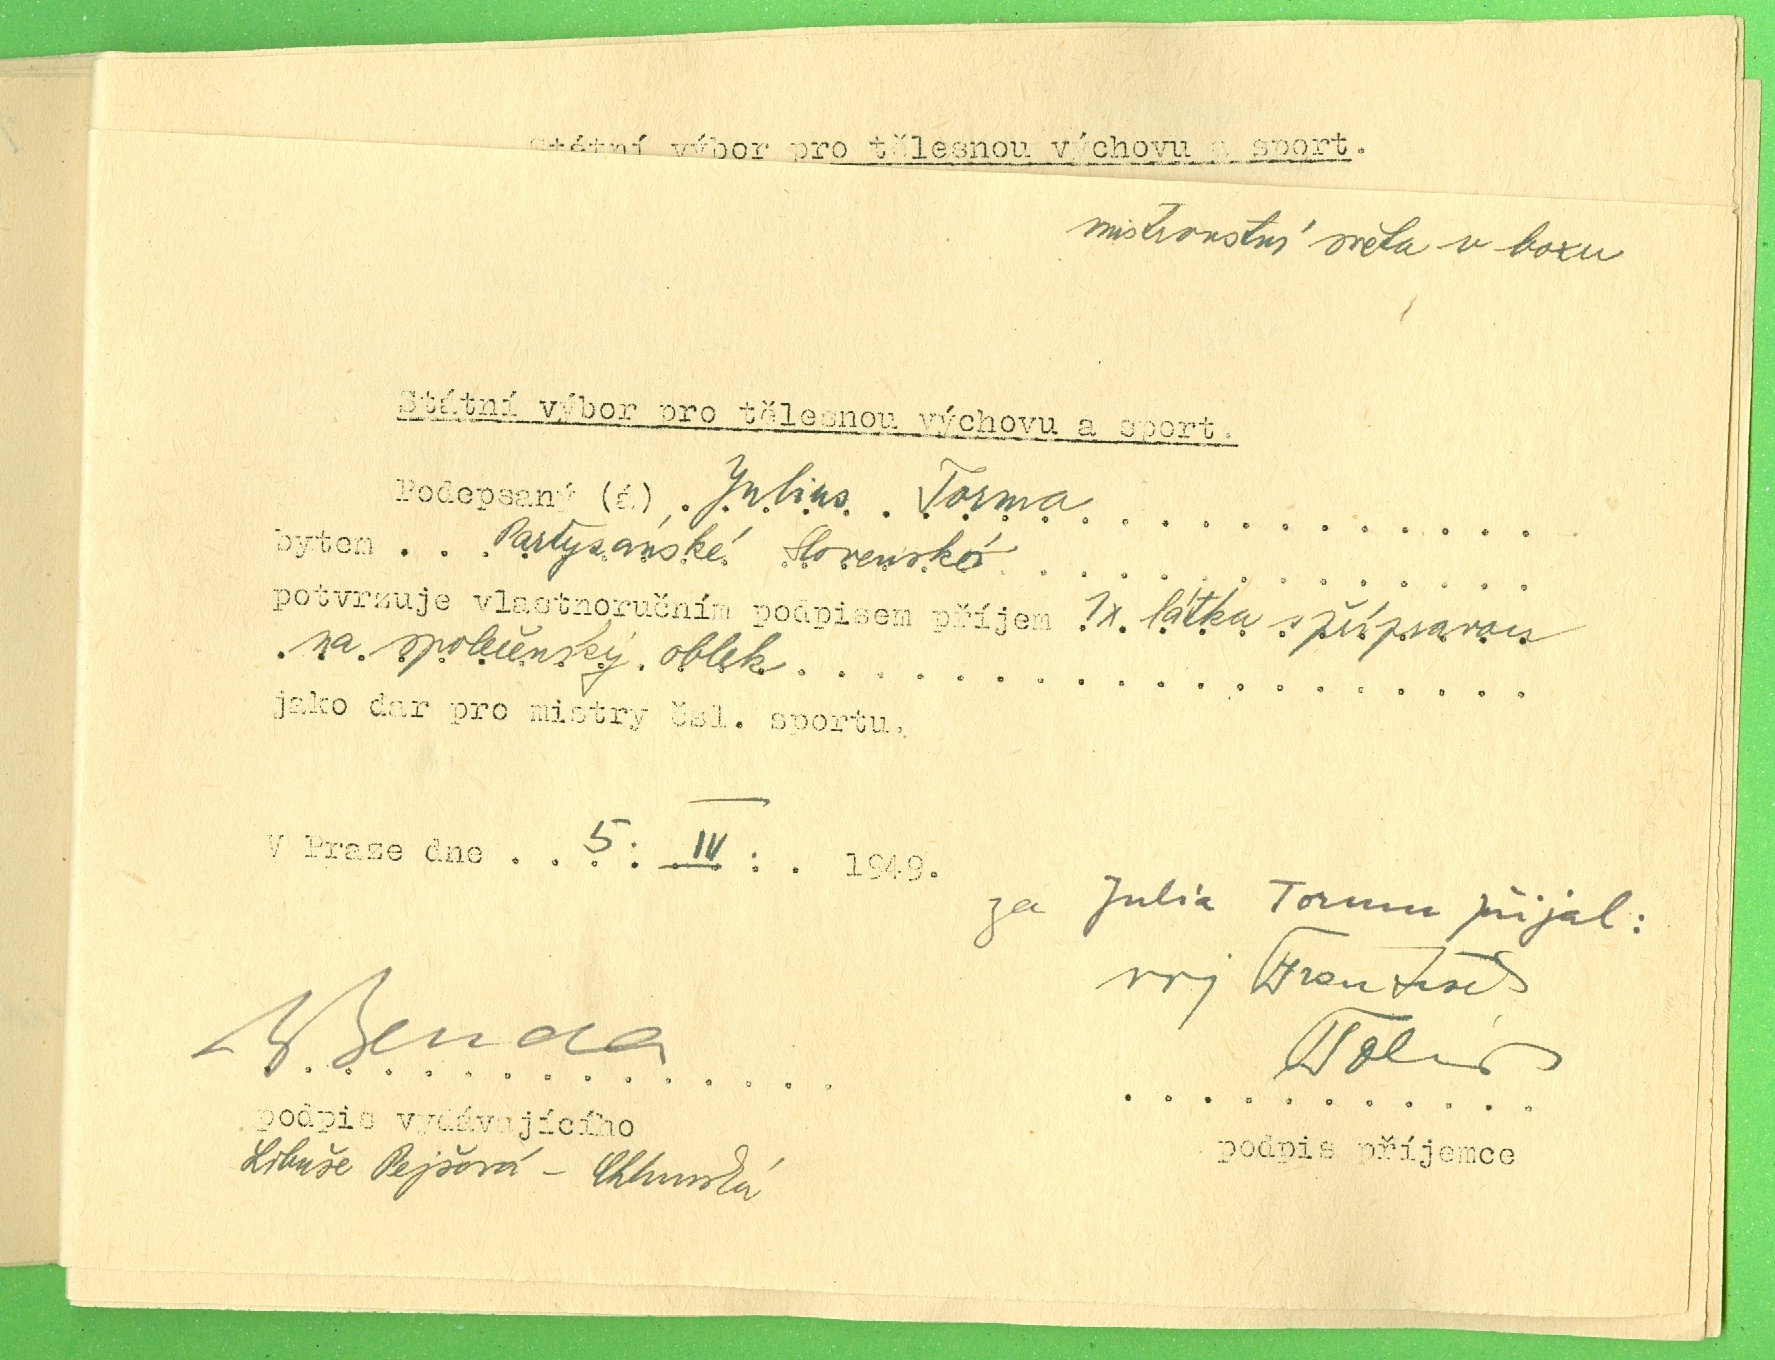 Státní výbor pro tělesnou výchovu a sport.
mistrovství světa v boxu
Státní výbor pro tělesnou výchovu a sport.
Podepsaný (á) . Julius . Torma . . . . . . . . . . . .
bytem . . . Partyzánské Slovensko . . . . . . . . . . . . .
potvrzuje vlastnoručním podpisem příjem 1x látka s přípravou
. na společenský oblek . . . . . . . . . . . . . . . . . . .
jako dar pro mistry čsl. sportu.
V Praze dne . . 5. IV . . 1949.
za Julia Tormu přijal:
voj František
Benda
podpis vydávajícího
podpis příjemce
Libuše Pejšová -